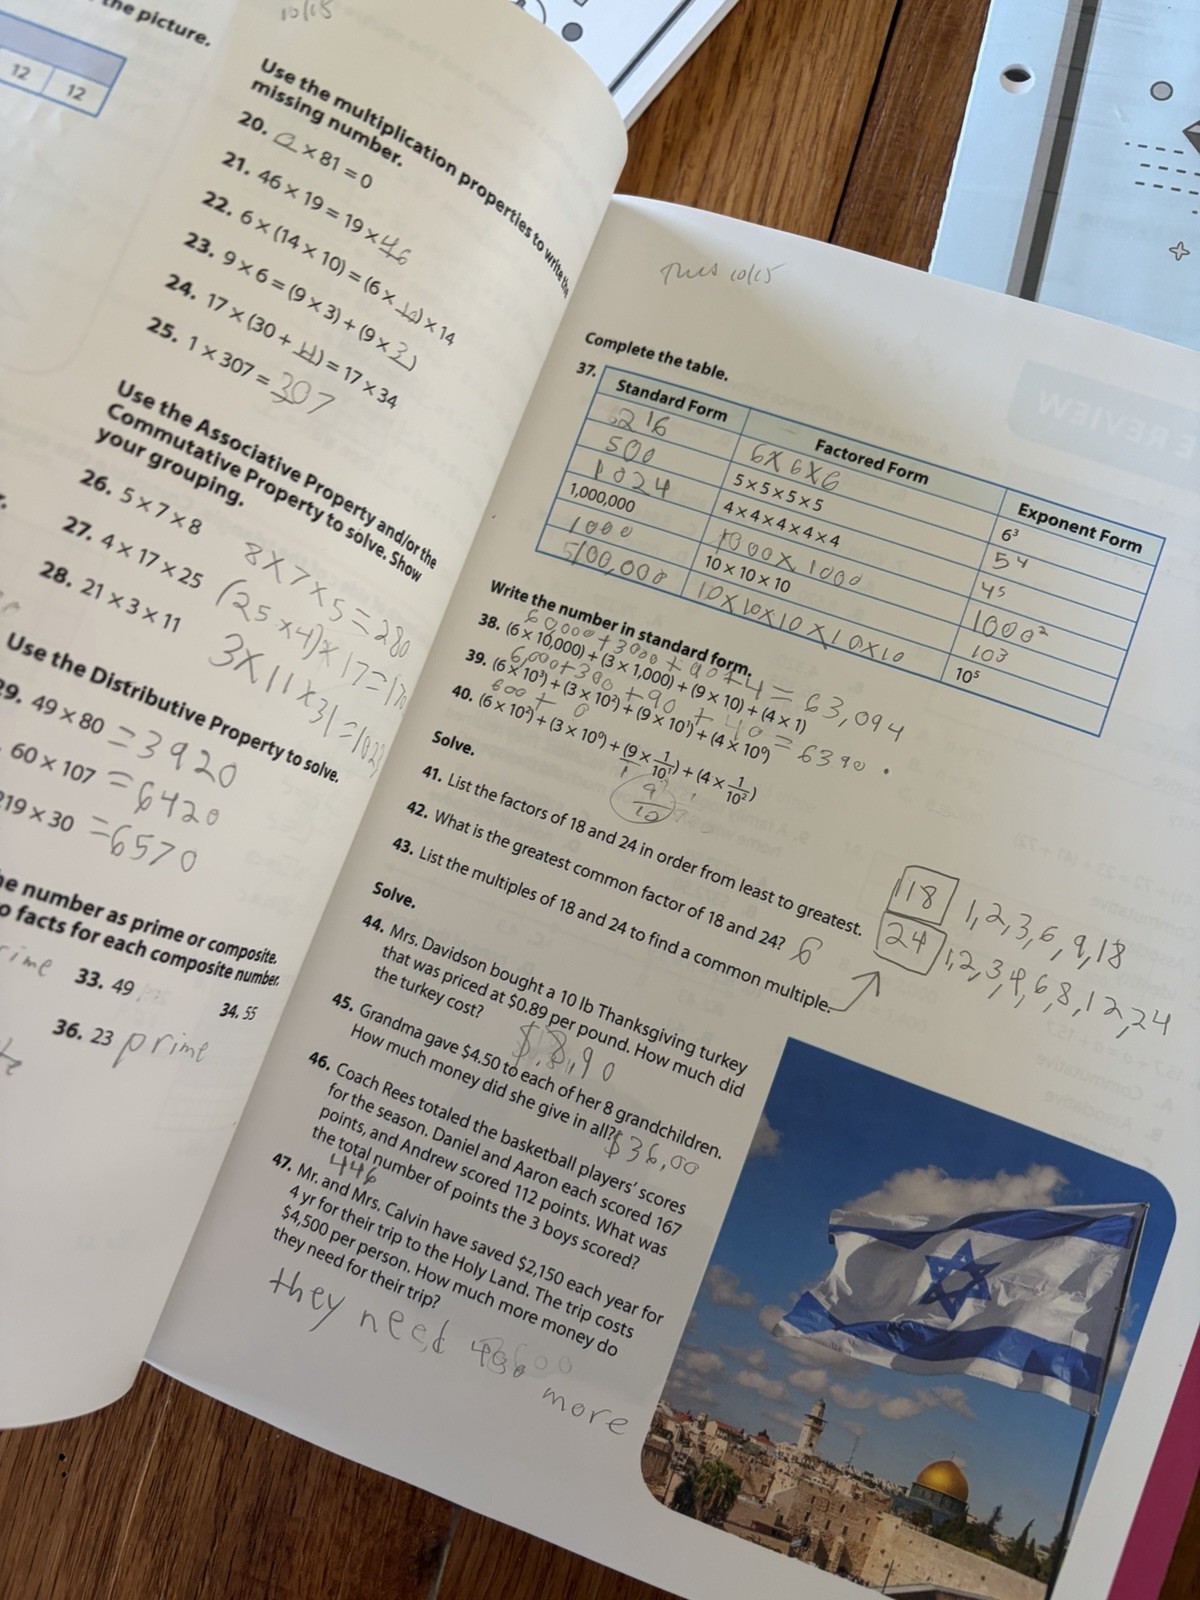 the picture.
12 12
10/15
Use the multiplication properties to write the
missing number.
20. 0 × 81 = 0
21. 46 × 19 = 19 × 46
22. 6 × (14 × 10) = (6 × 10) × 14
23. 9 × 6 = (9 × 3) + (9 × 3)
24. 17 × (30 + 4) = 17 × 34
25. 1 × 307 = 307
Use the Associative Property and/or the
Commutative Property to solve. Show
your grouping.
26. 5 × 7 × 8 8 × 7 × 5 = 280
27. 4 × 17 × 25 (25 × 4) × 17 = 170
28. 21 × 3 × 11 3 × 11 × 31 = 1023
Use the Distributive Property to solve.
29. 49 × 80 = 3920
60 × 107 = 6420
219 × 30 = 6570
number as prime or composite.
facts for each composite number.
33. 49
34. 55
36. 23 prime
tues 10/15
REVIEW
Complete the table.
37.
Standard Form Factored Form Exponent Form
216 6×6×6 6³
500 5 × 5 × 5 × 5 5⁴
1024 4 × 4 × 4 × 4 × 4 4⁵
1,000,000 1000 × 1000 1000²
1000 10 × 10 × 10 10³
100,000 10×10×10×10×10 10⁵
Write the number in standard form.
60000+3000+90+4 = 63,094
38. (6 × 10,000) + (3 × 1,000) + (9 × 10) + (4 × 1)
6,000+300+90+40 = 6390
39. (6 × 10³) + (3 × 10²) + (9 × 10¹) + (4 × 10⁰)
600 + 0
40. (6 × 10²) + (3 × 10⁰) + (9 × 1/10¹) + (4 × 1/10²)
9/10
Solve.
41. List the factors of 18 and 24 in order from least to greatest.
18 1,2,3,6,9,18
24 1,2,3,4,6,8,12,24
42. What is the greatest common factor of 18 and 24? 6
43. List the multiples of 18 and 24 to find a common multiple.
Solve.
44. Mrs. Davidson bought a 10 lb Thanksgiving turkey
that was priced at $0.89 per pound. How much did
the turkey cost? $8,90
45. Grandma gave $4.50 to each of her 8 grandchildren.
How much money did she give in all? $36,00
46. Coach Rees totaled the basketball players' scores
for the season. Daniel and Aaron each scored 167
points, and Andrew scored 112 points. What was
the total number of points the 3 boys scored?
446
47. Mr. and Mrs. Calvin have saved $2,150 each year for
4 yr for their trip to the Holy Land. The trip costs
$4,500 per person. How much more money do
they need for their trip?
they need more